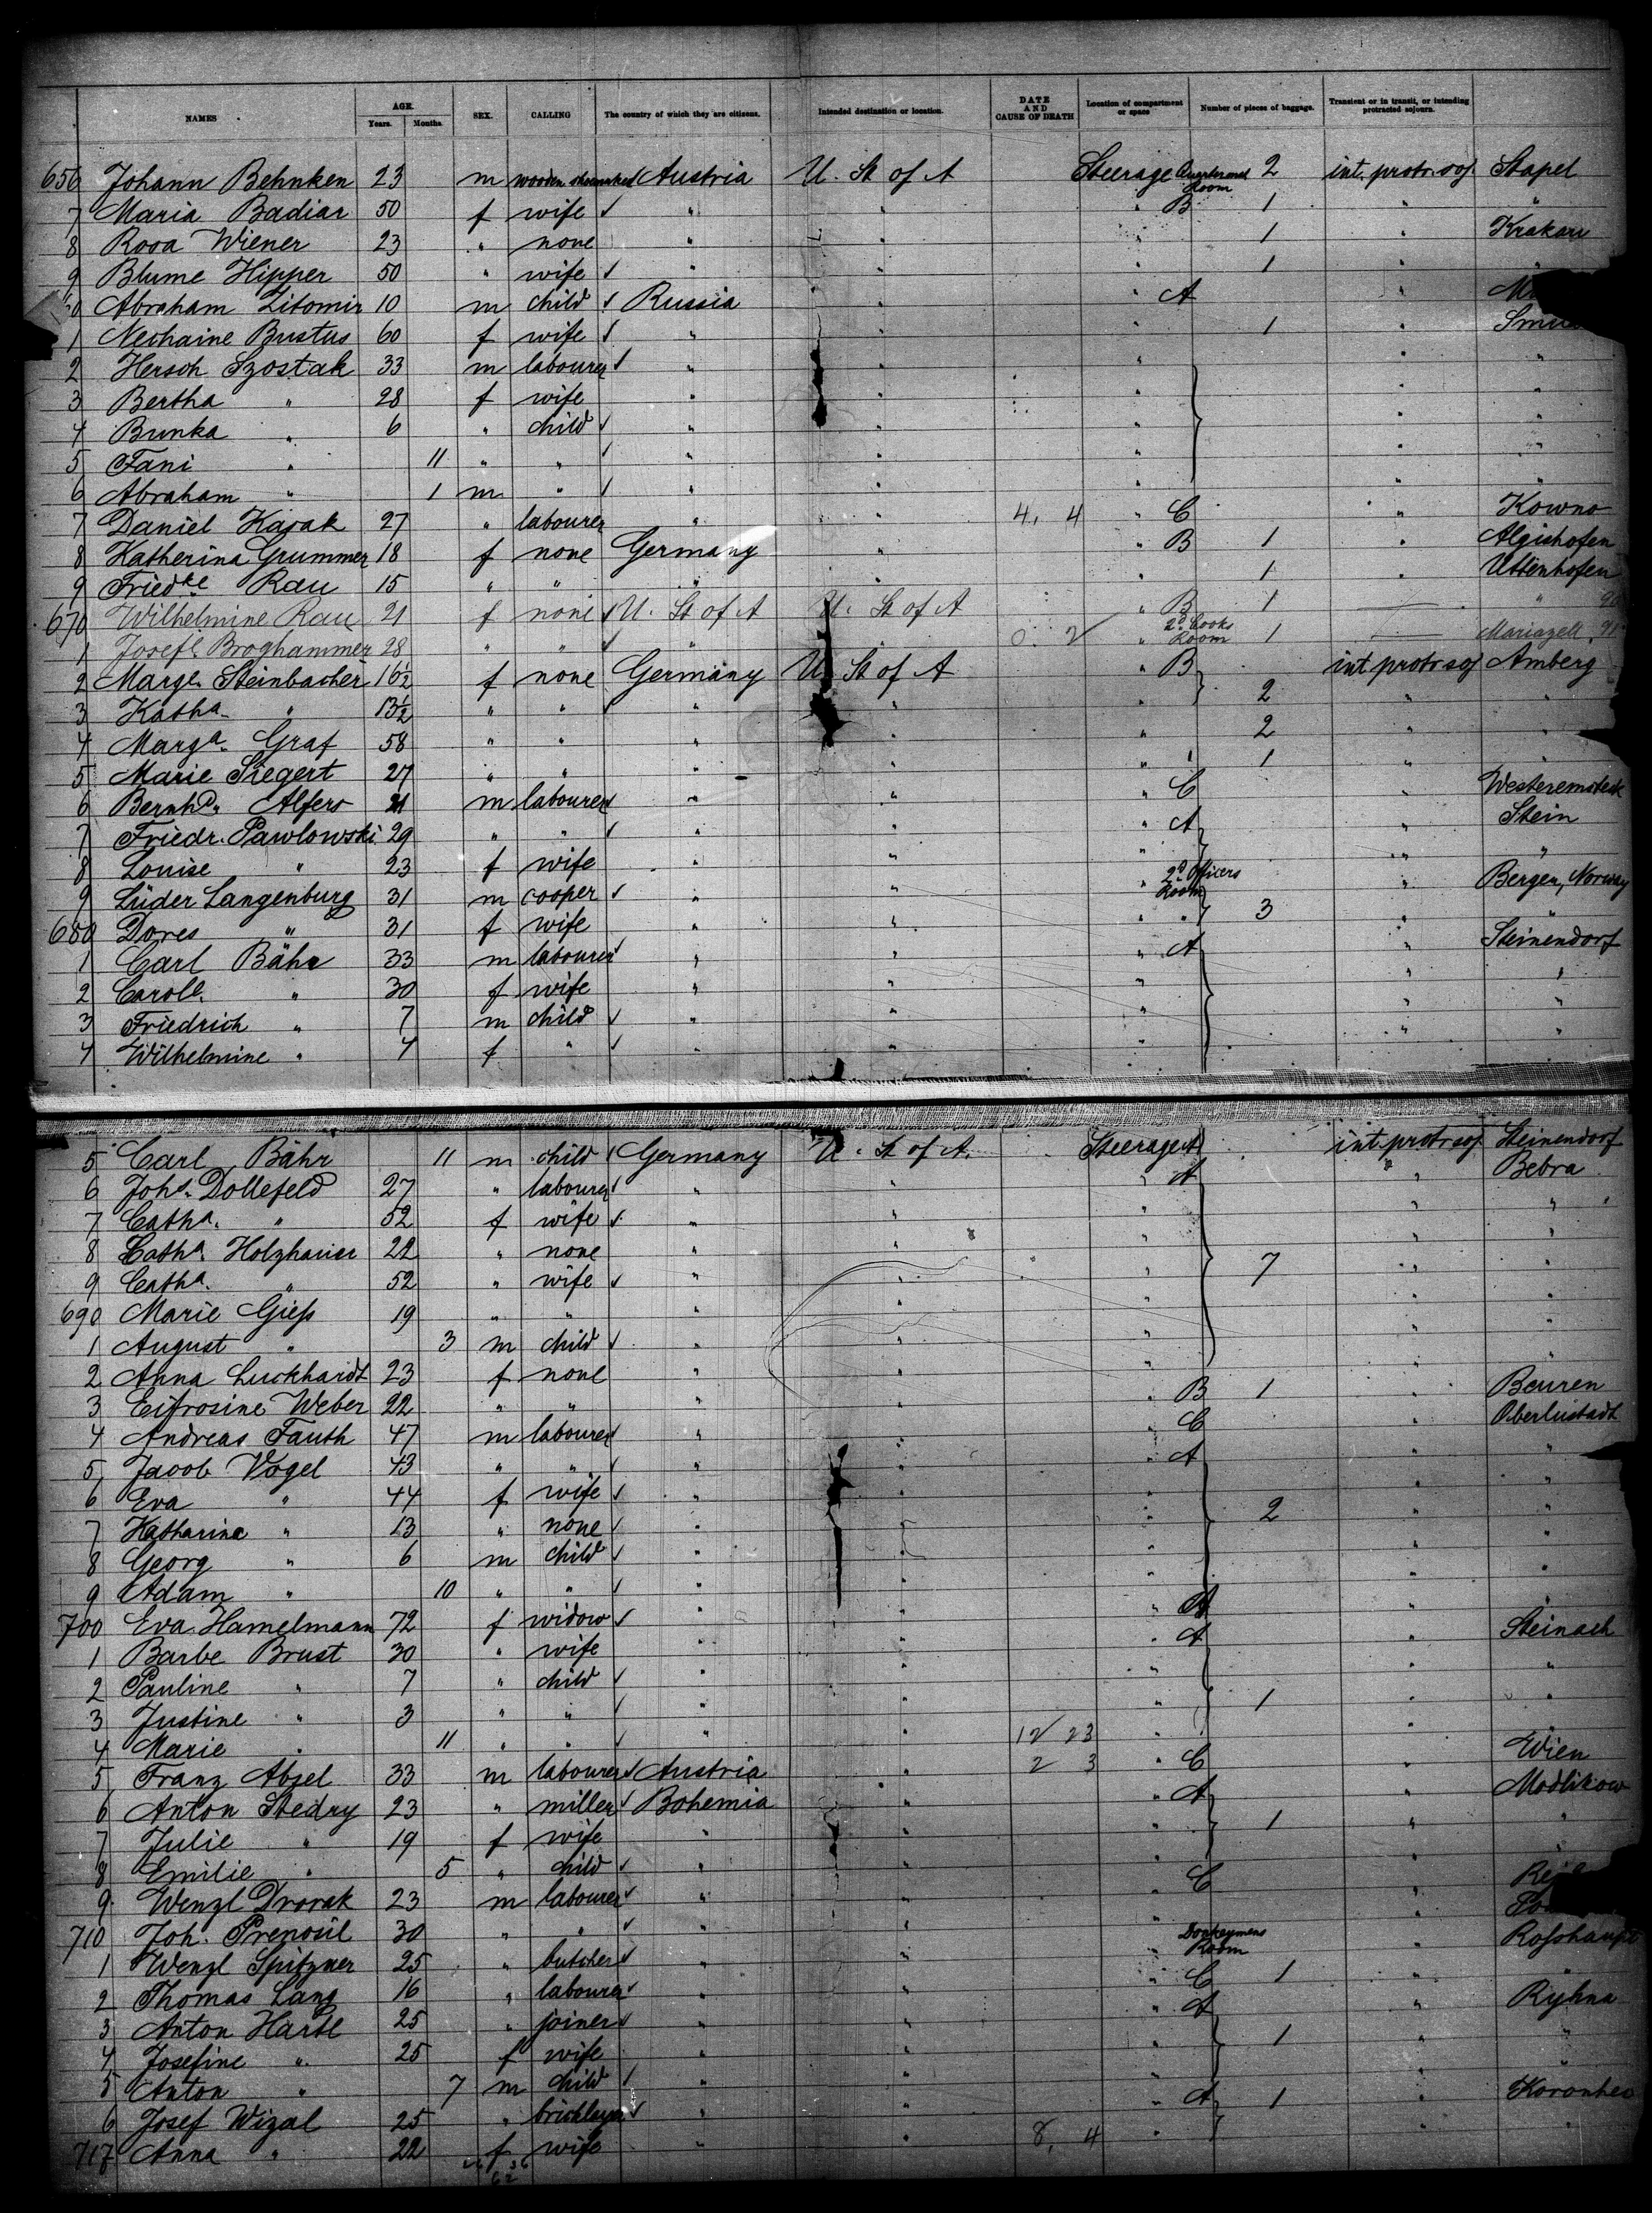 NAMES AGE. Years. Months. SEX. CALLING The country of which they are citizens. Intended destination or location. DATE AND CAUSE OF DEATH Location of compartment or space Number of pieces of baggage. Transient or in transit, or intending protracted sojourn.
656 Johann Behnken 23 m wooden shoemaker Austria U. St of A Steerage Quartermst Room 2 int. protr. soj. Stapel
7 Maria Badiar 50 f wife " " " B 1 " "
8 Rosa Wiener 23 " none " " " 1 " Krakau
9 Blume Hipper 50 " wife " " " 1 " "
Abraham Zitomir 10 m child Russia " " A "
1 Nechaine Bustus 60 f wife " " " 1 "
2 Hersch Szostak 33 m labourer " " " " "
3 Bertha " 28 f wife " " " " "
4 Bunka " 6 " child " " " " "
5 Fani " 11 " " " " " " "
6 Abraham " 1 m " " " " " "
7 Daniel Kasak 27 " labourer " " 4, 4 " C " Kowno
8 Katherina Grummer 18 f none Germany " " B 1 " Algishofen
9 Friedke Rau 15 " " " " " 1 " Uttenhofen
670 Wilhelmine Rau 21 f none U. St of A U. St of A " B 1 "
1 Josefe Broghammer 28 " " 0. 2 " 2d Cooks Room 1 Mariazell
2 Marge. Steinbacher 16½ f none Germany U St of A " B int protr soj Amberg
3 Katha. " 13½ " " " " 2 " "
4 Marga. Graf 58 " " " " " 2 " "
5 Marie Siegert 27 " " " " " 1 "
6 Bernhd. Alfers 21 m labourer " " " C "
7 Friedr. Pawlowski 29 " " " " " A " Stein
8 Louise " 23 f wife " " " " "
9 Lüder Langenburg 31 m cooper " " " 2d Officers Room " Bergen, Norway
680 Dores " 31 f wife " " " " 3 " "
1 Carl Bähr 33 m labourer " " " A " Steinendorf
2 Carole. " 30 f wife " " " " "
3 Friedrich " 7 m child " " " " "
4 Wilhelmine " 4 f " " " " " "
5 Carl Bähr 11 m child Germany U. St of A. Steerage A int. protr soj Steinendorf
6 Johs. Dollefeld 27 " labourer " " " A " Bebra
7 Catha. " 52 f wife " " " " "
8 Catha. Holzhauer 22 " none " " " " "
9 Catha. " 52 " wife " " " 7 " "
690 Marie Giess 19 " " " " " " "
1 August " 3 m child " " " " "
2 Anna Luckhardt 23 f none " " " " "
3 Eifrosine Weber 22 " " " " " B 1 " Beuren
4 Andreas Fauth 47 m labourer " " " C " Oberlustadt
5 Jacob Vogel 43 " " " " " A " "
6 Eva " 44 f wife " " " " "
7 Katharina " 13 " none " " " 2 " "
8 Georg " 6 m child " " " " "
9 Adam " 10 " " " " " " "
700 Eva Hamelmann 72 f widow " " " A " "
1 Barbe Brust 30 " wife " " " A " Steinach
2 Pauline " 7 " child " " " " "
3 Justine " 3 " " " " " 1 " "
4 Marie " 11 " " " " 12 23 " "
5 Franz Absel 33 m labourer Austria " 2 3 " C " Wien
6 Anton Stedry 23 " miller Bohemia " " A " Modlikow
7 Julie " 19 f wife " " " 1 " "
8 Emilie " 5 " child " " " "
9 Wenzl Dvorak 23 m labourer " " " C "
710 Joh. Prenosil 30 " " " " " "
1 Wenzl Spitzner 25 " butcher " " " Donkeymens Room "
2 Thomas Lang 16 " labourer " " " C 1 " "
3 Anton Hartl 25 " joiner " " " A " Ryhna
4 Josefine " 25 f wife " " " 1 " "
5 Anton " 7 m child " " " " "
6 Josef Wizal 25 " bricklayer " " " A 1 "
717 Anna " 22 f wife " " 8, 4 " " "